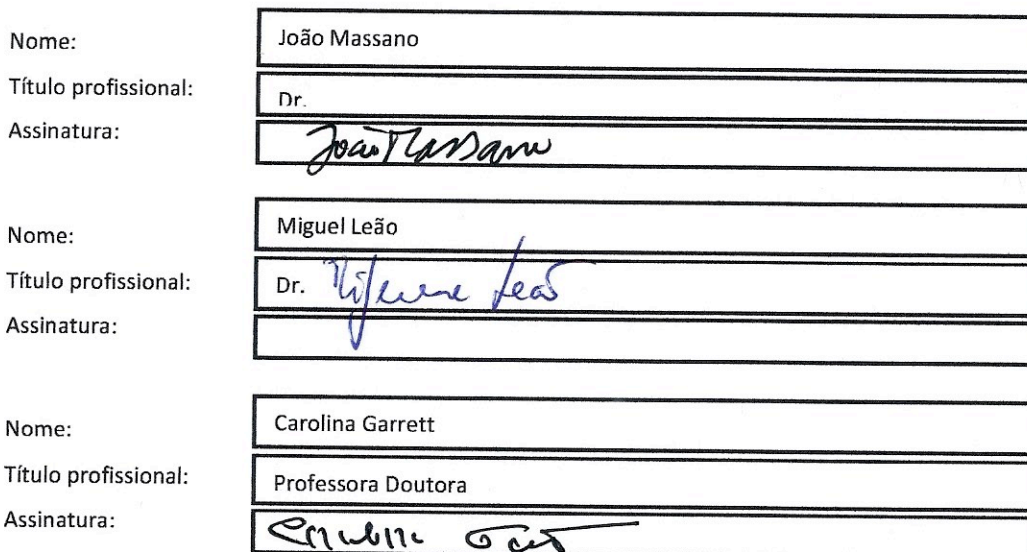 Nome: João Massano
Título profissional: Dr.
Assinatura: João Massano
Nome: Miguel Leão
Título profissional: Dr. Miguel Leão
Assinatura:
Nome: Carolina Garrett
Título profissional: Professora Doutora
Assinatura: